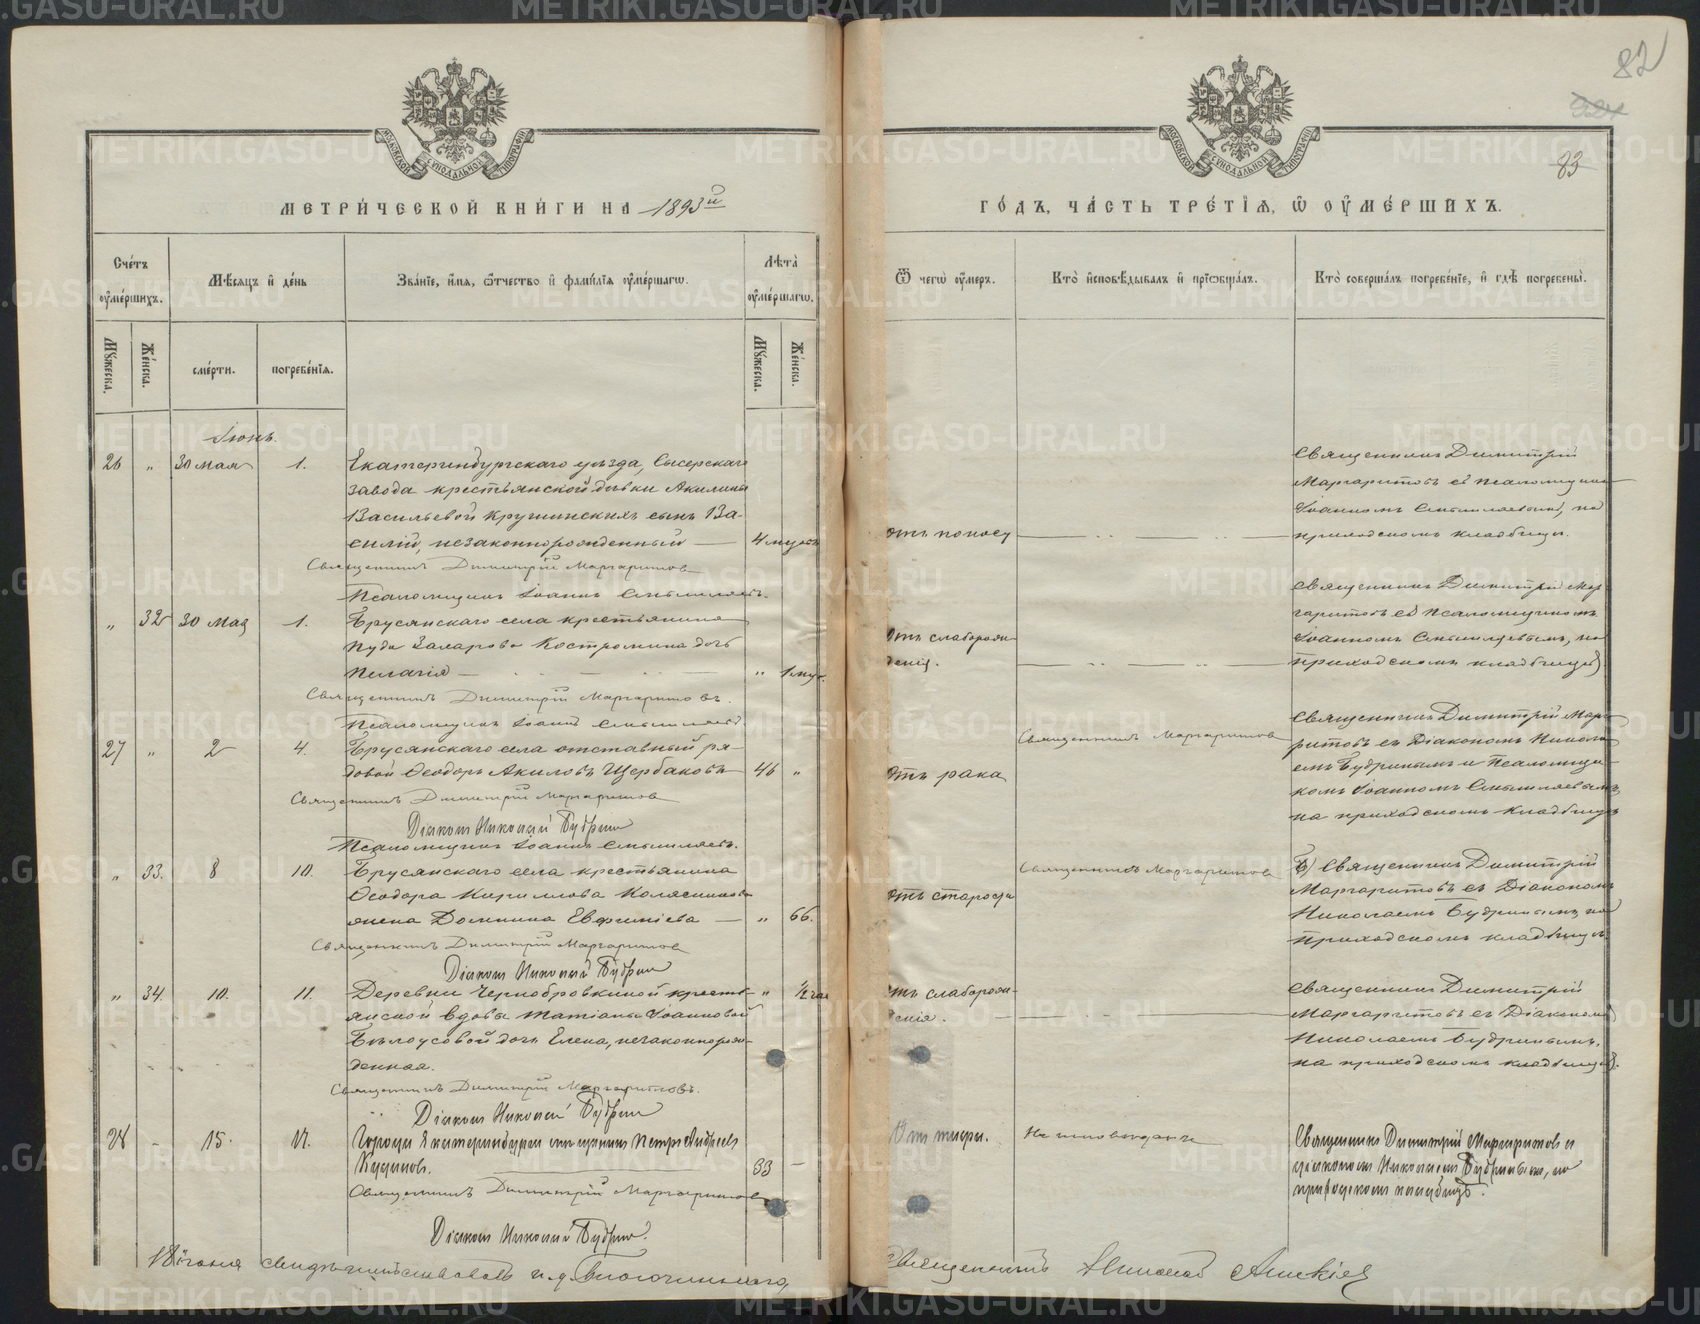 82
83
МОСКОВСКОЙ СѴНОДАЛЬНОЙ ТИПОГРАФІИ
МОСКОВСКОЙ СѴНОДАЛЬНОЙ ТИПОГРАФІИ
МЕТРИ́ЧЕСКОЙ КНИ́ГИ НА 1893й
ГО́ДЪ, ЧА́СТЬ ТРЕ́ТІЯ, Ѽ ОУМЕ́РШИХЪ.
Сче́тъ оуме́ршихъ.
Мѣ́сяцъ и де́нь
Зва́ніе, и́мя, ѻ҆́тчество и фами́лія оуме́ршагѡ.
Лѣта̀ оуме́ршагѡ.
Ѿ чегѡ̀ оу́меръ.
Кто̀ исповѣ́дывалъ и пріѡбща́лъ.
Кто̀ соверша́лъ погребе́ніе, и гдѣ̀ погребены̀.
Мꙋжеска.
Же́нска.
сме́рти.
погребе́нія.
Мꙋжеска.
Же́нска.
Іюнь.
26 " 30 мая 1. Екатеринбургскаго уѣзда, Сысерскаго
завода крестьянской дѣвки Акилины
Васильевой Крушинскихъ сынъ Ва-
силій, незаконнорожденный — 4 мѣсяц
Священникъ Димитрій Маргаритовъ
Псаломщикъ Іоаннъ Смышляевъ.
отъ поносу
Священникъ Димитрій
Маргаритовъ съ псаломщикомъ
Іоанномъ Смышляевымъ, на
приходскомъ кладбищѣ.
" 32 30 мая 1. Брусянскаго села крестьянина
Пуда Захарова Костромина дочь
Пелагія — " 1 мѣс.
Священникъ Димитрій Маргаритовъ.
Псаломщикъ Іоаннъ Смышляевъ.
отъ слаборож-
денія.
Священникъ Димитрій Мар-
гаритовъ съ псаломщикомъ
Іоанномъ Смышляевымъ, на
приходскомъ кладбищѣ.
27 " 2 4. Брусянскаго села отставный ря-
довой Ѳеодоръ Акиловъ Щербаковъ 46 "
Священникъ Димитрій Маргаритовъ
Діаконъ Николай Будринъ
Псаломщикъ Іоаннъ Смышляевъ.
отъ рака
Священникъ Маргаритовъ
Священникъ Димитрій Марга-
ритовъ съ Діакономъ Никола-
емъ Будринымъ и Псаломщи-
комъ Іоанномъ Смышляевымъ,
на приходскомъ кладбищѣ
" 33. 8 10. Брусянскаго села крестьянина
Ѳеодора Кирилова Колясникова
жена Домнина Евфиміева — " 66.
Священникъ Димитрій Маргаритовъ
Діаконъ Николай Будринъ
отъ старости
Священникъ Маргаритовъ
Священникъ Димитрій
Маргаритовъ съ Діакономъ
Николаемъ Будринымъ, на
приходскомъ кладбищѣ.
" 34. 10. 11. Деревни Чернобровкиной кресть- " ½ час
янской вдовы Татіаны Іоанновой
Бѣлоусовой дочь Елена, незаконнорож-
денная.
Священникъ Димитрій Маргаритовъ.
Діаконъ Николай Будринъ
отъ слаборож-
денія.
Священникъ Димитрій
Маргаритовъ съ Діакономъ
Николаемъ Будринымъ,
на приходскомъ кладбищѣ.
28 - 15. 17. Города Екатеринбурга мѣщанинъ Петръ Андреевъ
33 —
Священникъ Димитрій Маргаритовъ
Діаконъ Николай Будринъ.
Не исповѣданъ
Священникъ Димитрій Маргаритовъ и
діаконъ Николай Будринымъ, на
приходскомъ кладбищѣ.
18 іюня свидѣтельствовалъ и. д. Благочиннаго,
Священникъ Николай